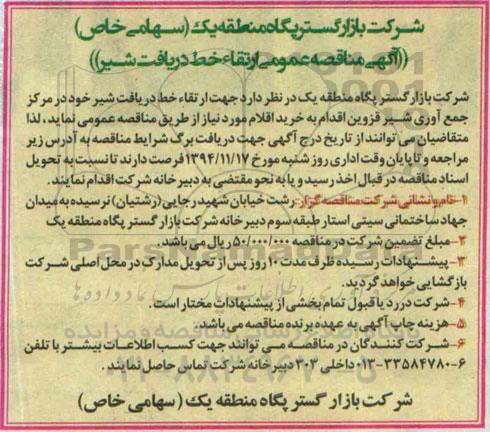 شرکت بازار گستر پگاه منطقه یک (سهامی خاص)
((آگهی مناقصه عمومی ارتقاء خط دریافت شیر))
شرکت بازار گستر پگاه منطقه یک در نظر دارد جهت ارتقاء خط دریافت شیر خود در مرکز
جمع آوری شیر قزوین اقدام به خرید اقلام مورد نیاز از طریق مناقصه عمومی نماید، لذا
متقاضیان می توانند از تاریخ درج آگهی جهت دریافت برگ شرایط مناقصه به آدرس زیر
مراجعه و تا پایان وقت اداری روز شنبه مورخ ۱۳۹۴/۱۱/۱۷ فرصت دارند تا نسبت به تحویل
اسناد مناقصه در قبال اخذ رسید و یا به نحو مقتضی به دبیرخانه شرکت اقدام نمایند.
۱-نام و نشانی شرکت مناقصه گزار: رشت خیابان شهید رجایی (رشتیان) نرسیده به میدان
جهاد ساختمانی سیتی استار طبقه سوم دبیرخانه شرکت بازار گستر پگاه منطقه یک
۲-مبلغ تضمین شرکت در مناقصه ۵۰/۰۰۰/۰۰۰ ریال می باشد.
۳-پیشنهادات رسیده ظرف مدت ۱۰ روز پس از تحویل مدارک در محل اصلی شرکت
بازگشایی خواهد گردید.
۴-شرکت در رد یا قبول تمام بخشی از پیشنهادات مختار است.
۵-هزینه چاپ آگهی به عهده برنده مناقصه می باشد.
۶-شرکت کنندگان در مناقصه می توانند جهت کسب اطلاعات بیشتر با تلفن
۶-۰۱۳-۳۳۵۸۴۷۸۰ داخلی ۲۰۳ دبیرخانه شرکت تماس حاصل نمایند.
شرکت بازار گستر پگاه منطقه یک (سهامی خاص)